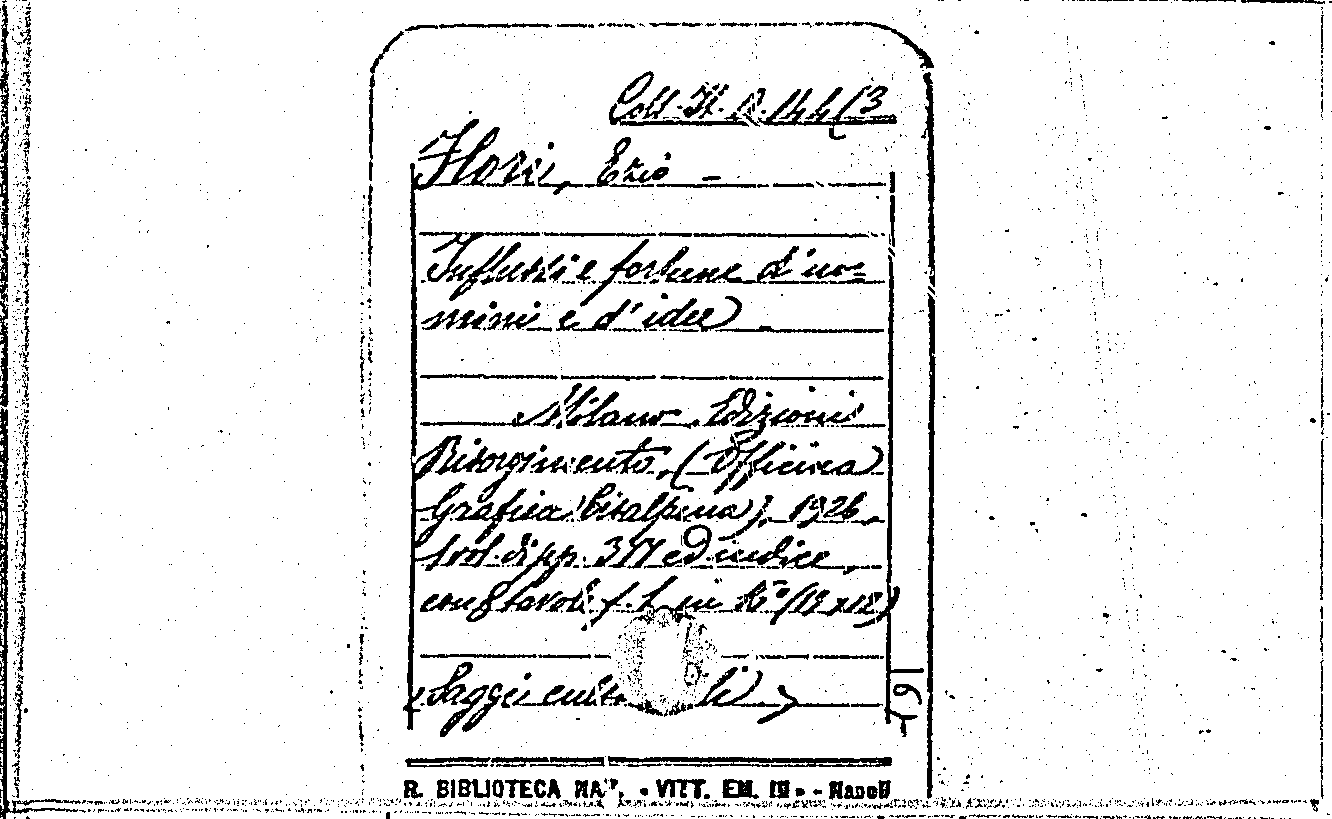 Coll. It. B. 144(3
Flori, Ezio -
Influssi e fortune d'uo=
mini e d'idee.
Milano, Edizioni
Risorgimento, (Officina
Grafica Cisalpina), 1926.
1 vol. di pp. 377 ed indice,
con tavole f. t. in 16° (19x12)
«Saggi cultu li.»
R. BIBLIOTECA NAZ. «VITT. EM. III» - Napoli